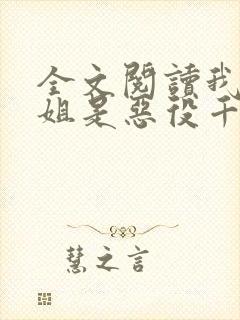 全文閱讀我
姐是惡役千
慧之言